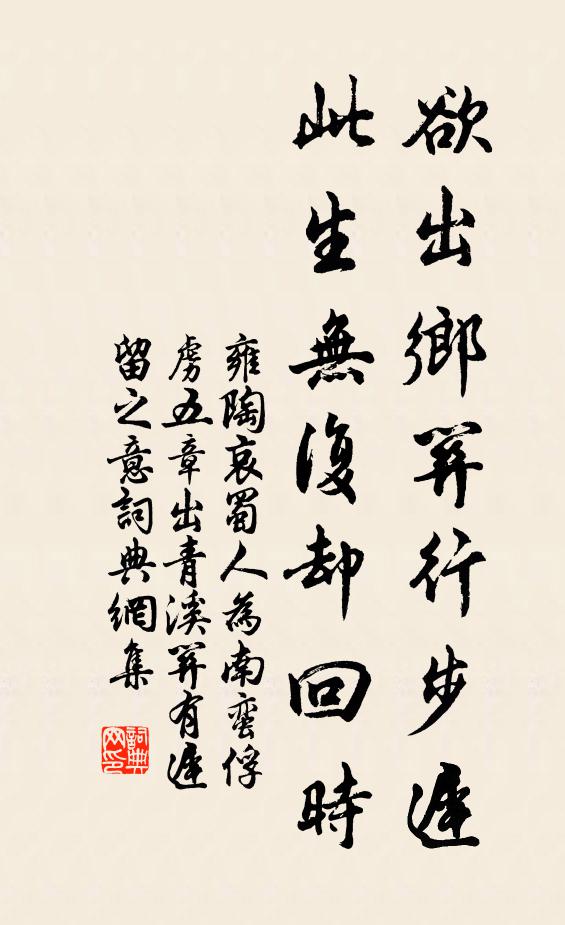 欲出鄉關行步遲
此生無復却回時
雍陶哀蜀人為南蠻俘
虜五章出青溪關有遲
留之意詞典網集
詞典
网印